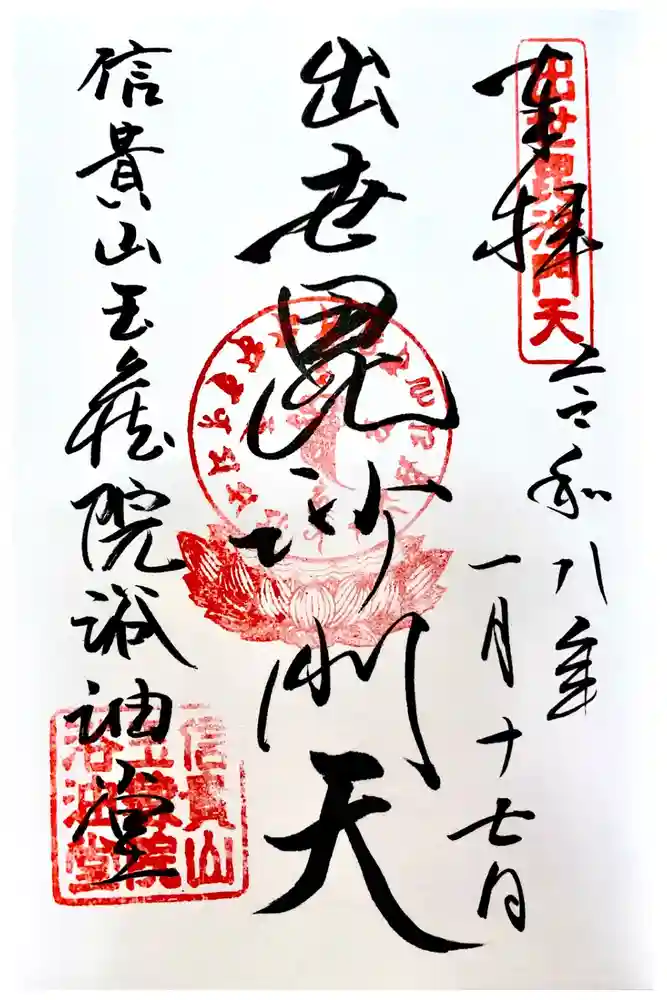 奉拝
令和八年
一月十七日
出世毘沙門天
信貴山玉蔵院浴油堂
出世毘沙門天
信貴山
玉蔵院
浴油堂